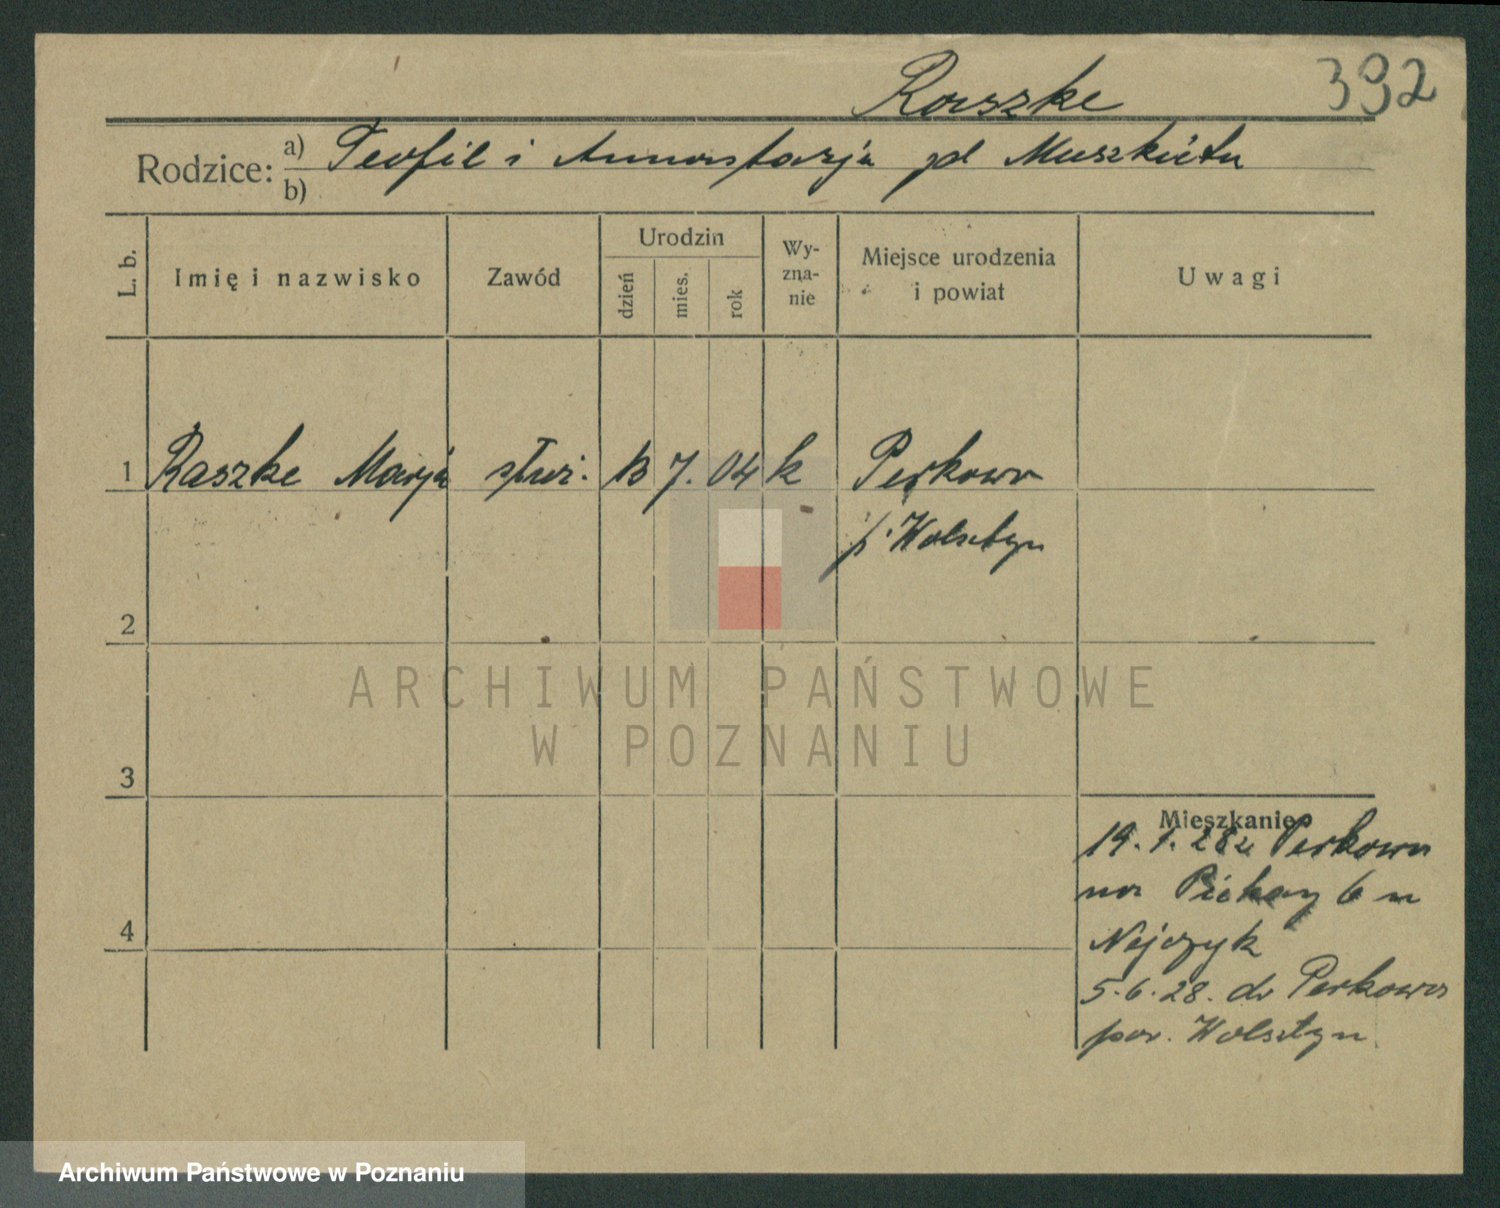 Raszke 392
Rodzice: a) Teofil i Anastazja zd Muszkieta
b)
L. b. Imię i nazwisko Zawód Urodzin dzień mies. rok Wy-zna-nie Miejsce urodzenia i powiat Uwagi
1 Raszke Marja służ. 13 7. 04 k Perkowo
p. Wolsztyn
2
ARCHIWUM PAŃSTWOWE
W POZNANIU
3
Mieszkanie
19. 1. 28 z Perkowa
na Piekary 6 u
Nejczyk
4
5. 6. 28. do Perkowa
pow. Wolsztyn
Archiwum Państwowe w Poznaniu